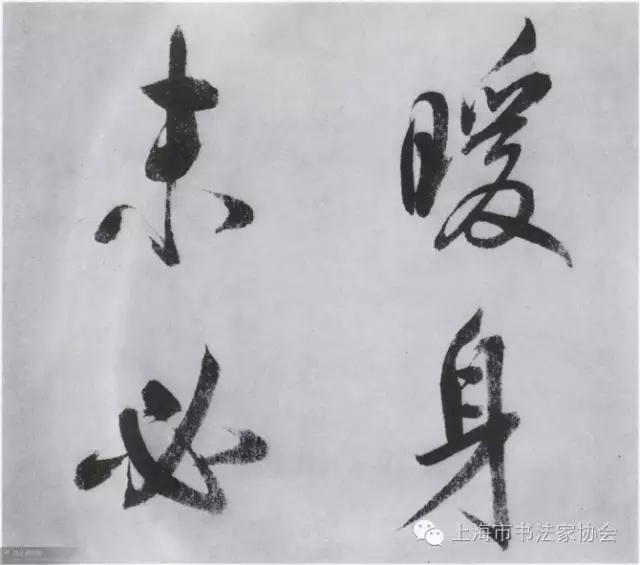 暖身
未必
上海市书法家协会